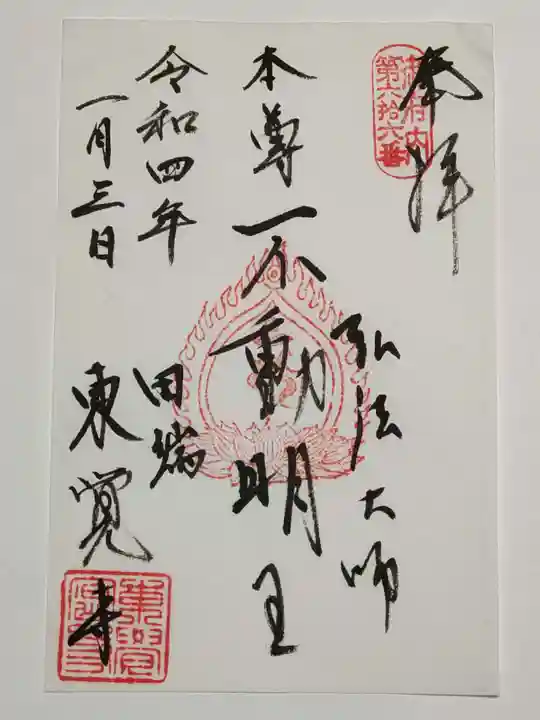 奉拝
御府内
第六拾六番
弘法大師
本尊 不動明王
令和四年
一月三日
田端
東覚寺